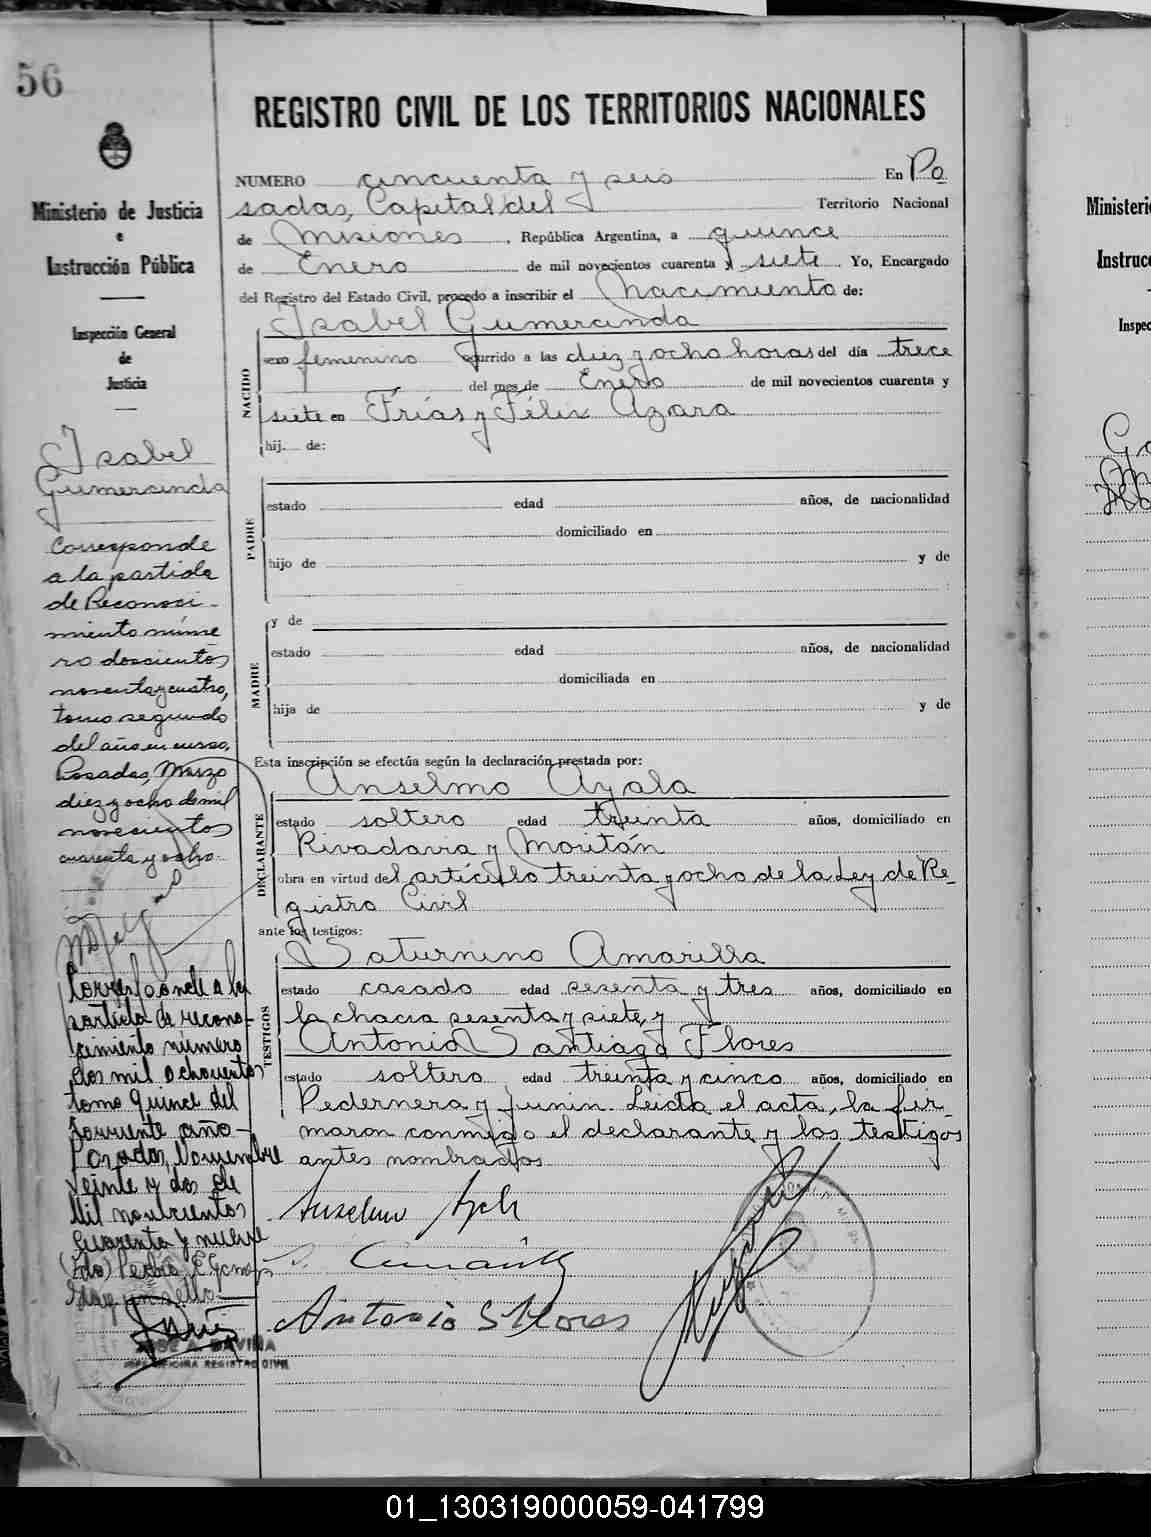 56
Ministerio de Justicia
e
Instrucción Pública
Inspección General
de
Justicia
Isabel
Gumercinda
Corresponde
a la partida
de Reconoci-
miento núme
ro doscientos
noventa y cuatro,
tomo segundo
del año en curso,
Posadas, Marzo
diez y ocho de mil
novecientos
cuarenta y ocho.
Corresponde a la
partida de recono-
cimiento número
dos mil ochocientos
tomo quince del
corriente año-
Posadas, Noviembre
veinte y dos de
Mil novecientos
cuarenta y nueve
(Fdo) Pedro E.
Hay un sello
JOSE A. DAVIÑA
JEFE OFICINA REGISTRO CIVIL
REGISTRO CIVIL DE LOS TERRITORIOS NACIONALES
NUMERO cincuenta y seis En Po
sadas, Capital del Territorio Nacional
de Misiones, República Argentina, a quince
de Enero de mil novecientos cuarenta y siete. Yo, Encargado
del Registro del Estado Civil, procedo a inscribir el Nacimiento de:
Isabel Gumercinda
NACIDO
sexo femenino ocurrido a las diez y ocho horas del día trece
del mes de Enero de mil novecientos cuarenta y
siete en Frías y Félix Azara
hij... de:
PADRE
estado edad años, de nacionalidad
domiciliado en
hijo de y de
MADRE
y de
estado edad años, de nacionalidad
domiciliada en
hija de y de
Esta inscripción se efectúa según la declaración prestada por:
Anselmo Ayala
DECLARANTE
estado soltero edad treinta años, domiciliado en
Rivadavia y Moritán
obra en virtud del artículo treinta y ocho de la Ley de Re-
gistro Civil
ante los testigos:
Saturnino Amarilla
TESTIGOS
estado casado edad sesenta y tres años, domiciliado en
la chacra sesenta y siete, y
Antonio Santiago Flores
estado soltero edad treinta y cinco años, domiciliado en
Pedernera y Junin. Leida el acta, la fir-
maron conmigo el declarante y los testigos
antes nombrados.
Anselmo Ayala
Antonio S Flores
Ministerio
Instrucc
Inspec
01_130319000059-041799